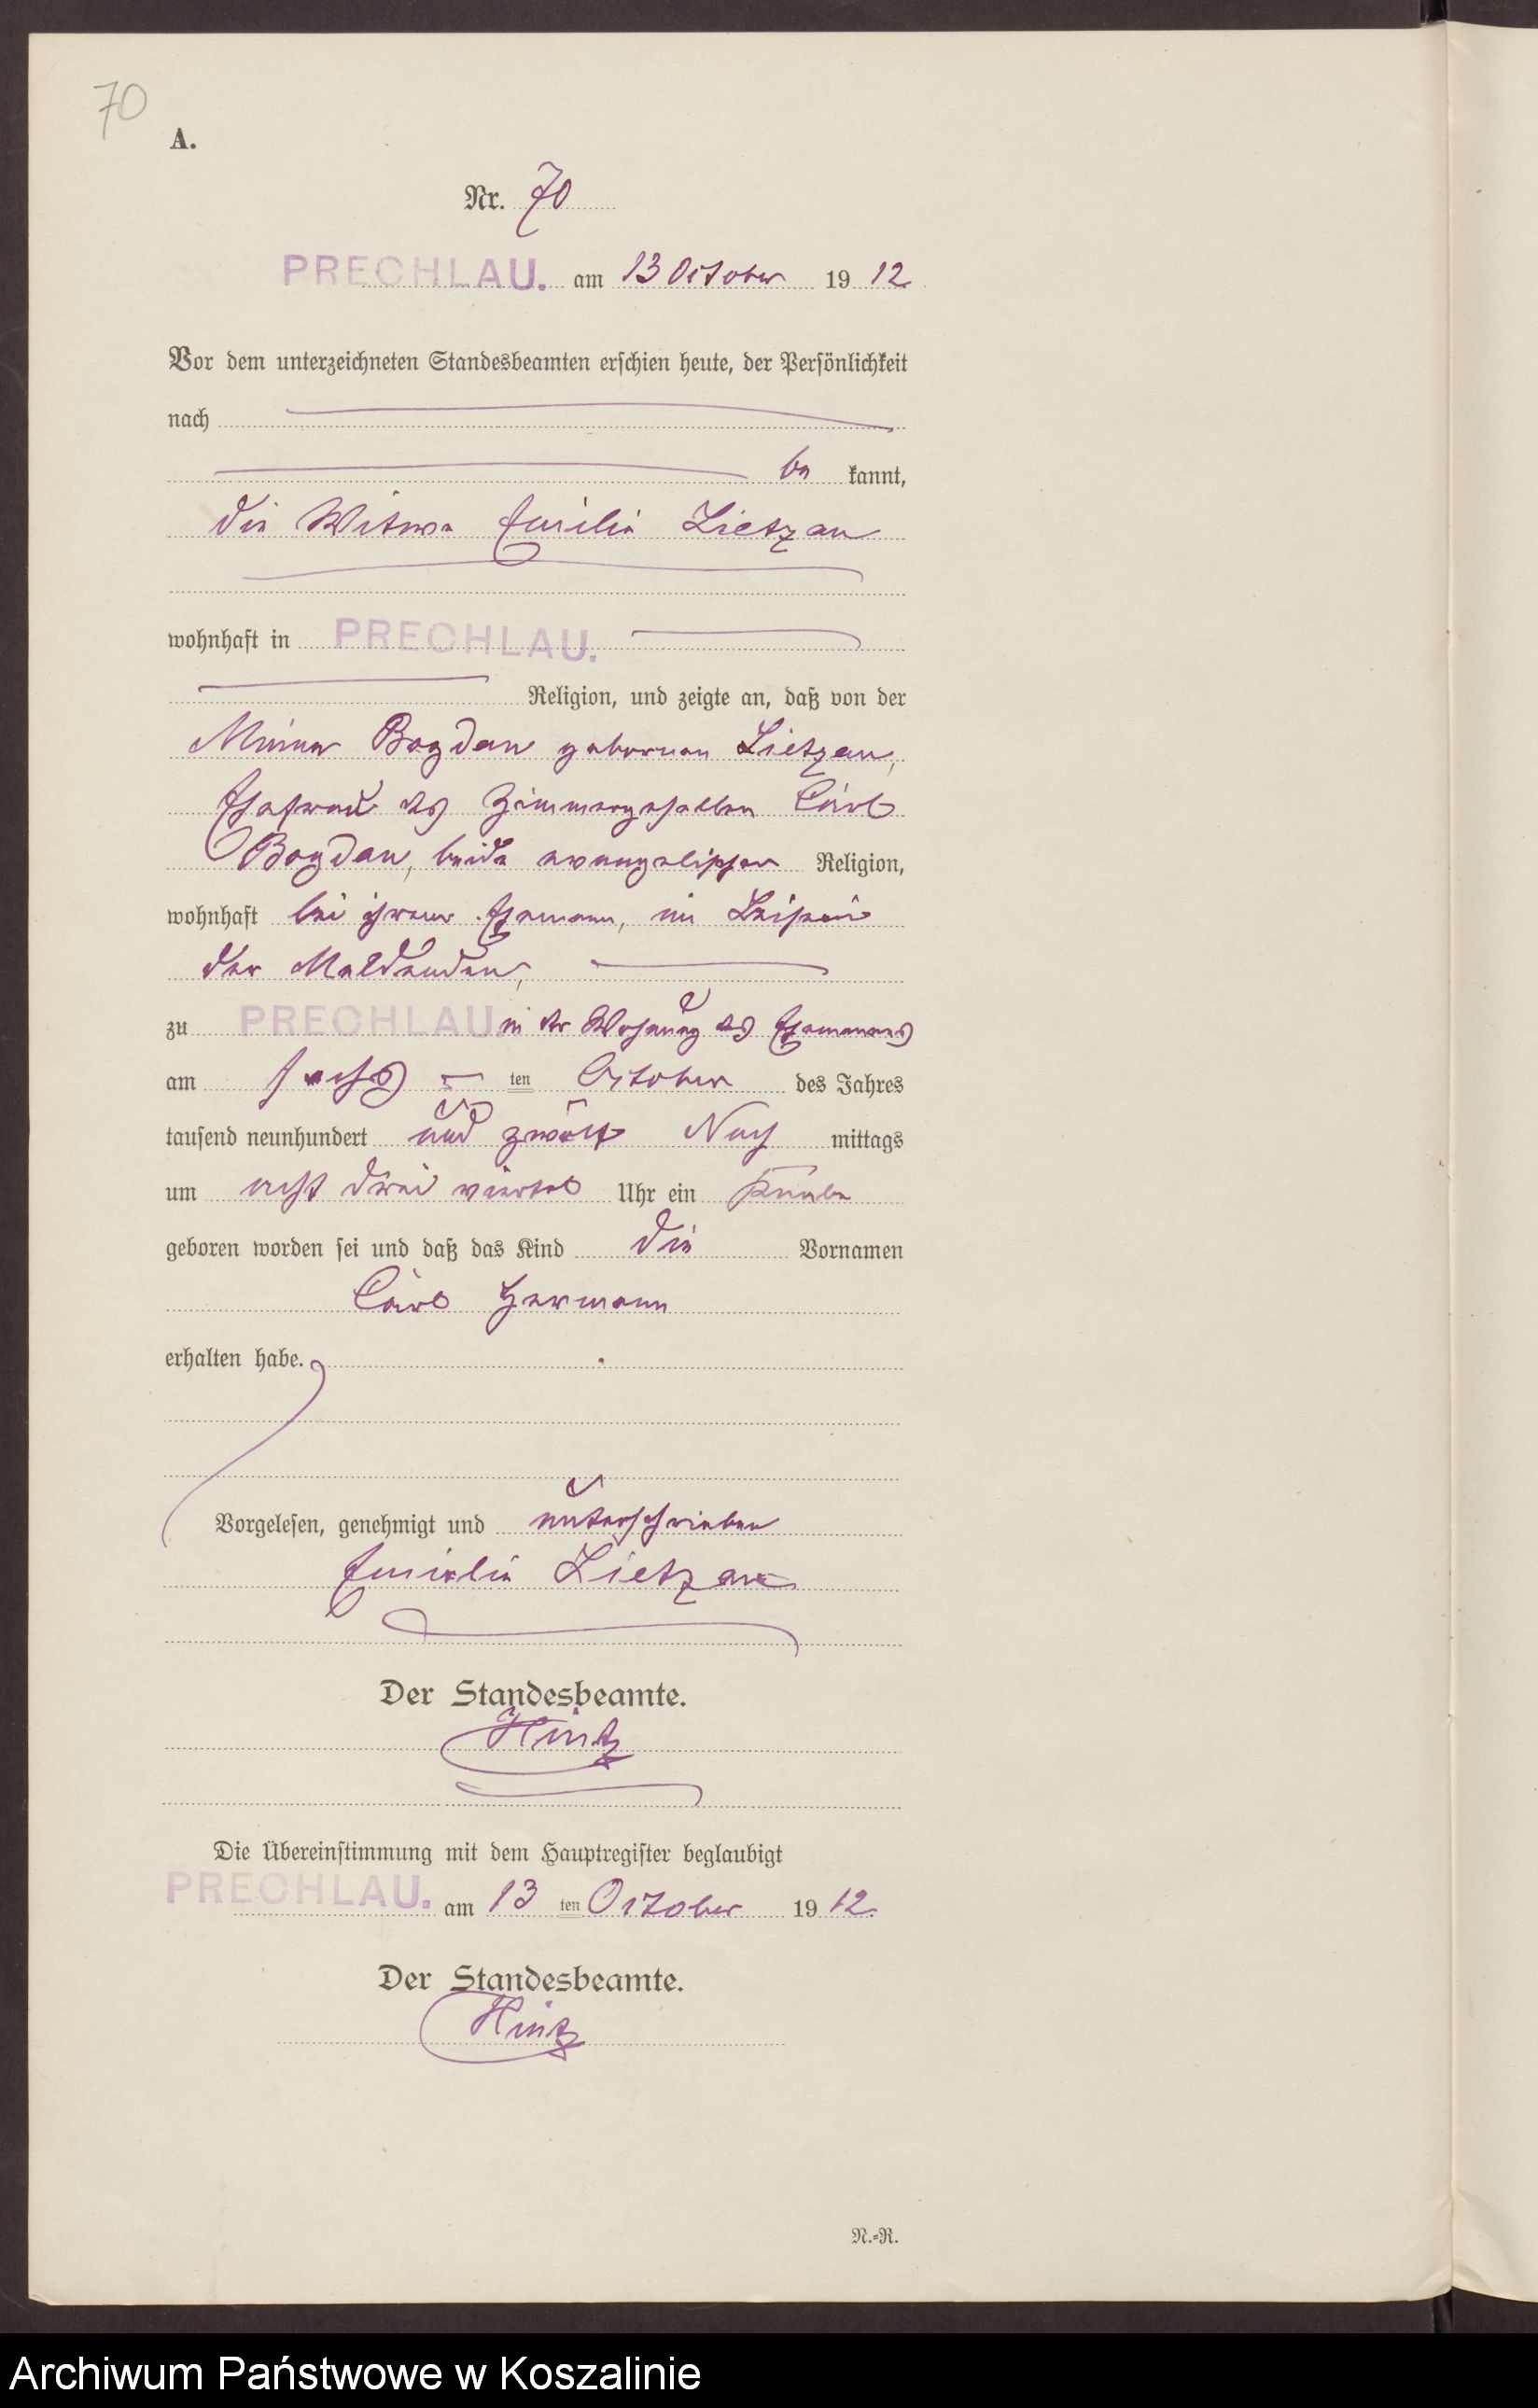 70
A.
Nr. 70
PRECHLAU. am 13 October 1912
Vor dem unterzeichneten Standesbeamten erschien heute, der Persönlichkeit
nach
be kannt,
die Witwe Emilie Lietzau
wohnhaft in PRECHLAU.
Religion, und zeigte an, daß von der
Minna Bogdan geborenen Lietzau,
Ehefrau des Zimmergesellen Carl
Bogdan, beide evangelischer Religion,
wohnhaft bei ihrem Ehemann, im Beisein
der Meldenden,
zu PRECHLAU. in der Wohnung des Ehemannes
am sechs ten October des Jahres
tausend neunhundert und zwölf Nach mittags
um acht drei viertel Uhr ein Knabe
geboren worden sei und daß das Kind die Vornamen
Carl Hermann
erhalten habe.
Vorgelesen, genehmigt und unterschrieben
Emilie Lietzau
Der Standesbeamte.
Hintz
Die Übereinstimmung mit dem Hauptregister beglaubigt
PRECHLAU. am 13 ten October 1912.
Der Standesbeamte.
Hintz
N.=R.
Archiwum Państwowe w Koszalinie